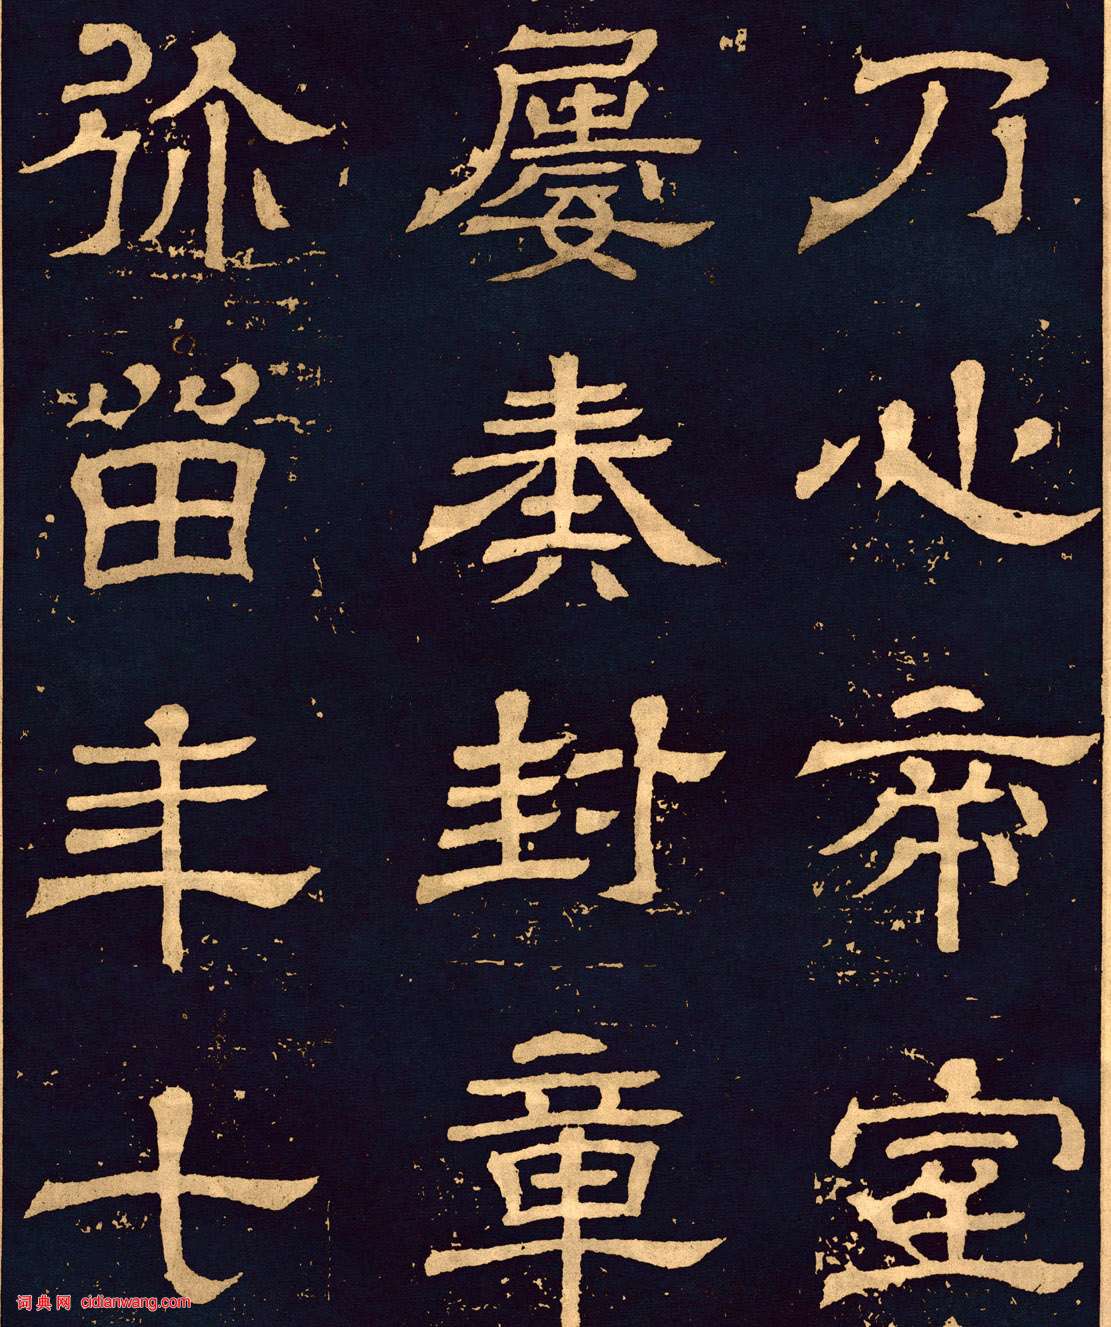 乃心帝室
屢奏封章
弥留年七
词典网 cidianwang.com